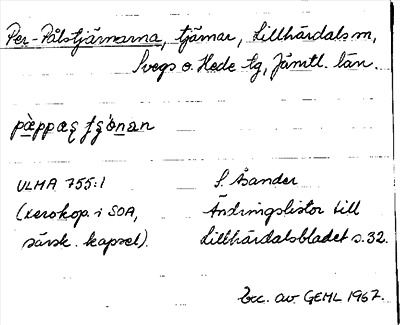 Per-Pålstjärnarna, tjärnar, Lillhärdals sn,
Svegs o. Hede tg, Jämtl. län.
ULMA 755:1
(xerokop. i SOA,
särsk. kapsel).
S. Åsander
Ändringslistor till
Lillhärdalsbladet s. 32.
Exc. av GEML 1967.